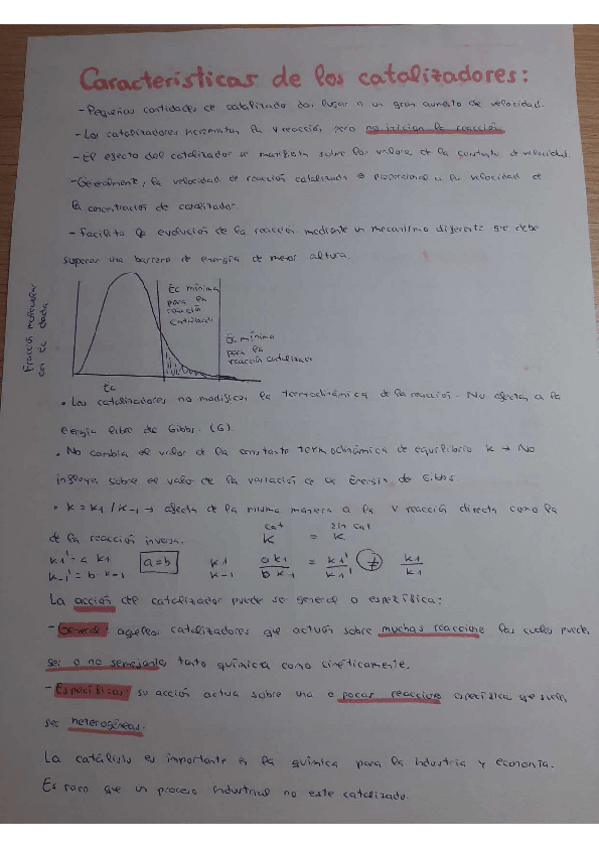 Características de los catalizadores:
- Pequeñas cantidades de catalizado dan lugar a un gran aumento de velocidad.
- Los catalizadores incrementan la v reacción, pero no inician la reacción
- El efecto del catalizador se manifiesta sobre los valores de la constante de velocidad.
- Generalmente, la velocidad de reacción catalizada es proporcional a la velocidad de
la concentración de catalizador.
- Facilita la evolución de la reacción mediante un mecanismo diferente se debe
superar una barrera de energía de menor altura.
Fracción molecular
con Ec dada
Ec mínima
para la
reacción
catalizada
Ec mínima
para la
reacción catalizada
Ec
• Los catalizadores no modifican la termodinámica de la reacción. No afectan a la
energía libre de Gibbs. (G).
• No cambia el valor de la constante termodinámica de equilibrio k → No
influye sobre el valor de la variación de la Energía de Gibbs.
• k = k1 / k-1 → afecta de la misma manera a la v reacción directa como la
de la reacción inversa.
cat sin cat
K = K
k1' = a k1
k-1' = b k-1
a = b
k1
k-1
a k1 = k1' ≠ k1
b k-1 k-1' k1
La acción del catalizador puede ser general o específica:
- General: aquellos catalizadores que actúan sobre muchas reaccione las cuales puede
ser o no semejante tanto química como cinéticamente.
- Específicas: su acción actua sobre una o pocas reaccione específica que suele
ser heterogéneas.
La catálisis es importante en la química para la industria y economía.
Es raro que un proceso industrial no este catalizado.